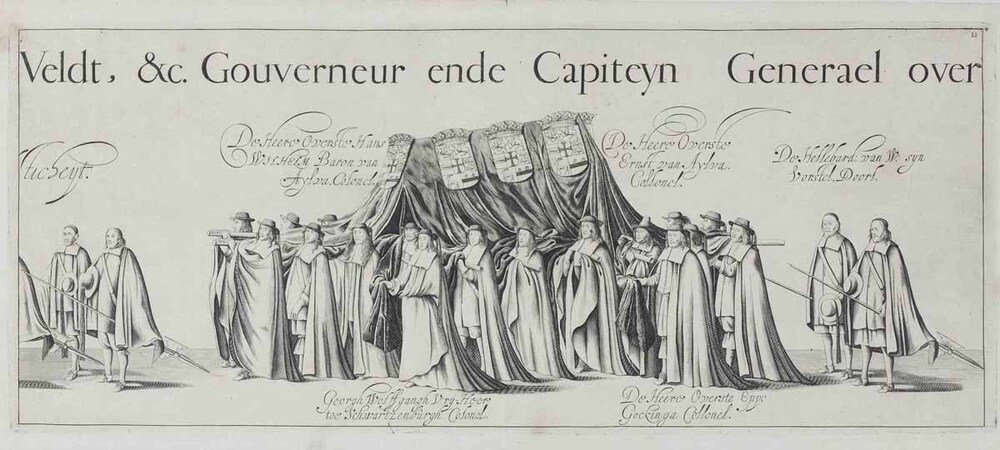 Veldt, &c. Gouverneur ende Capiteyn Generael over
De Heere Overste Hans
Wilhelm Baron van
Aylva. Colonel.
De Heere Overste
Ernst van Aylva.
Collonel.
De Hellebard: van W. syn
Vorstel. Doorl.
Georgh Wolffgangh Vry Heer
toe Schwartzenburgh Colonel.
De Heere Overste Eppo
Gockinga Collonel.